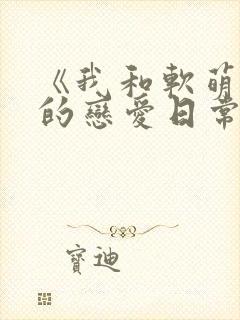 《我和軟萌
的戀愛日常
寶迪